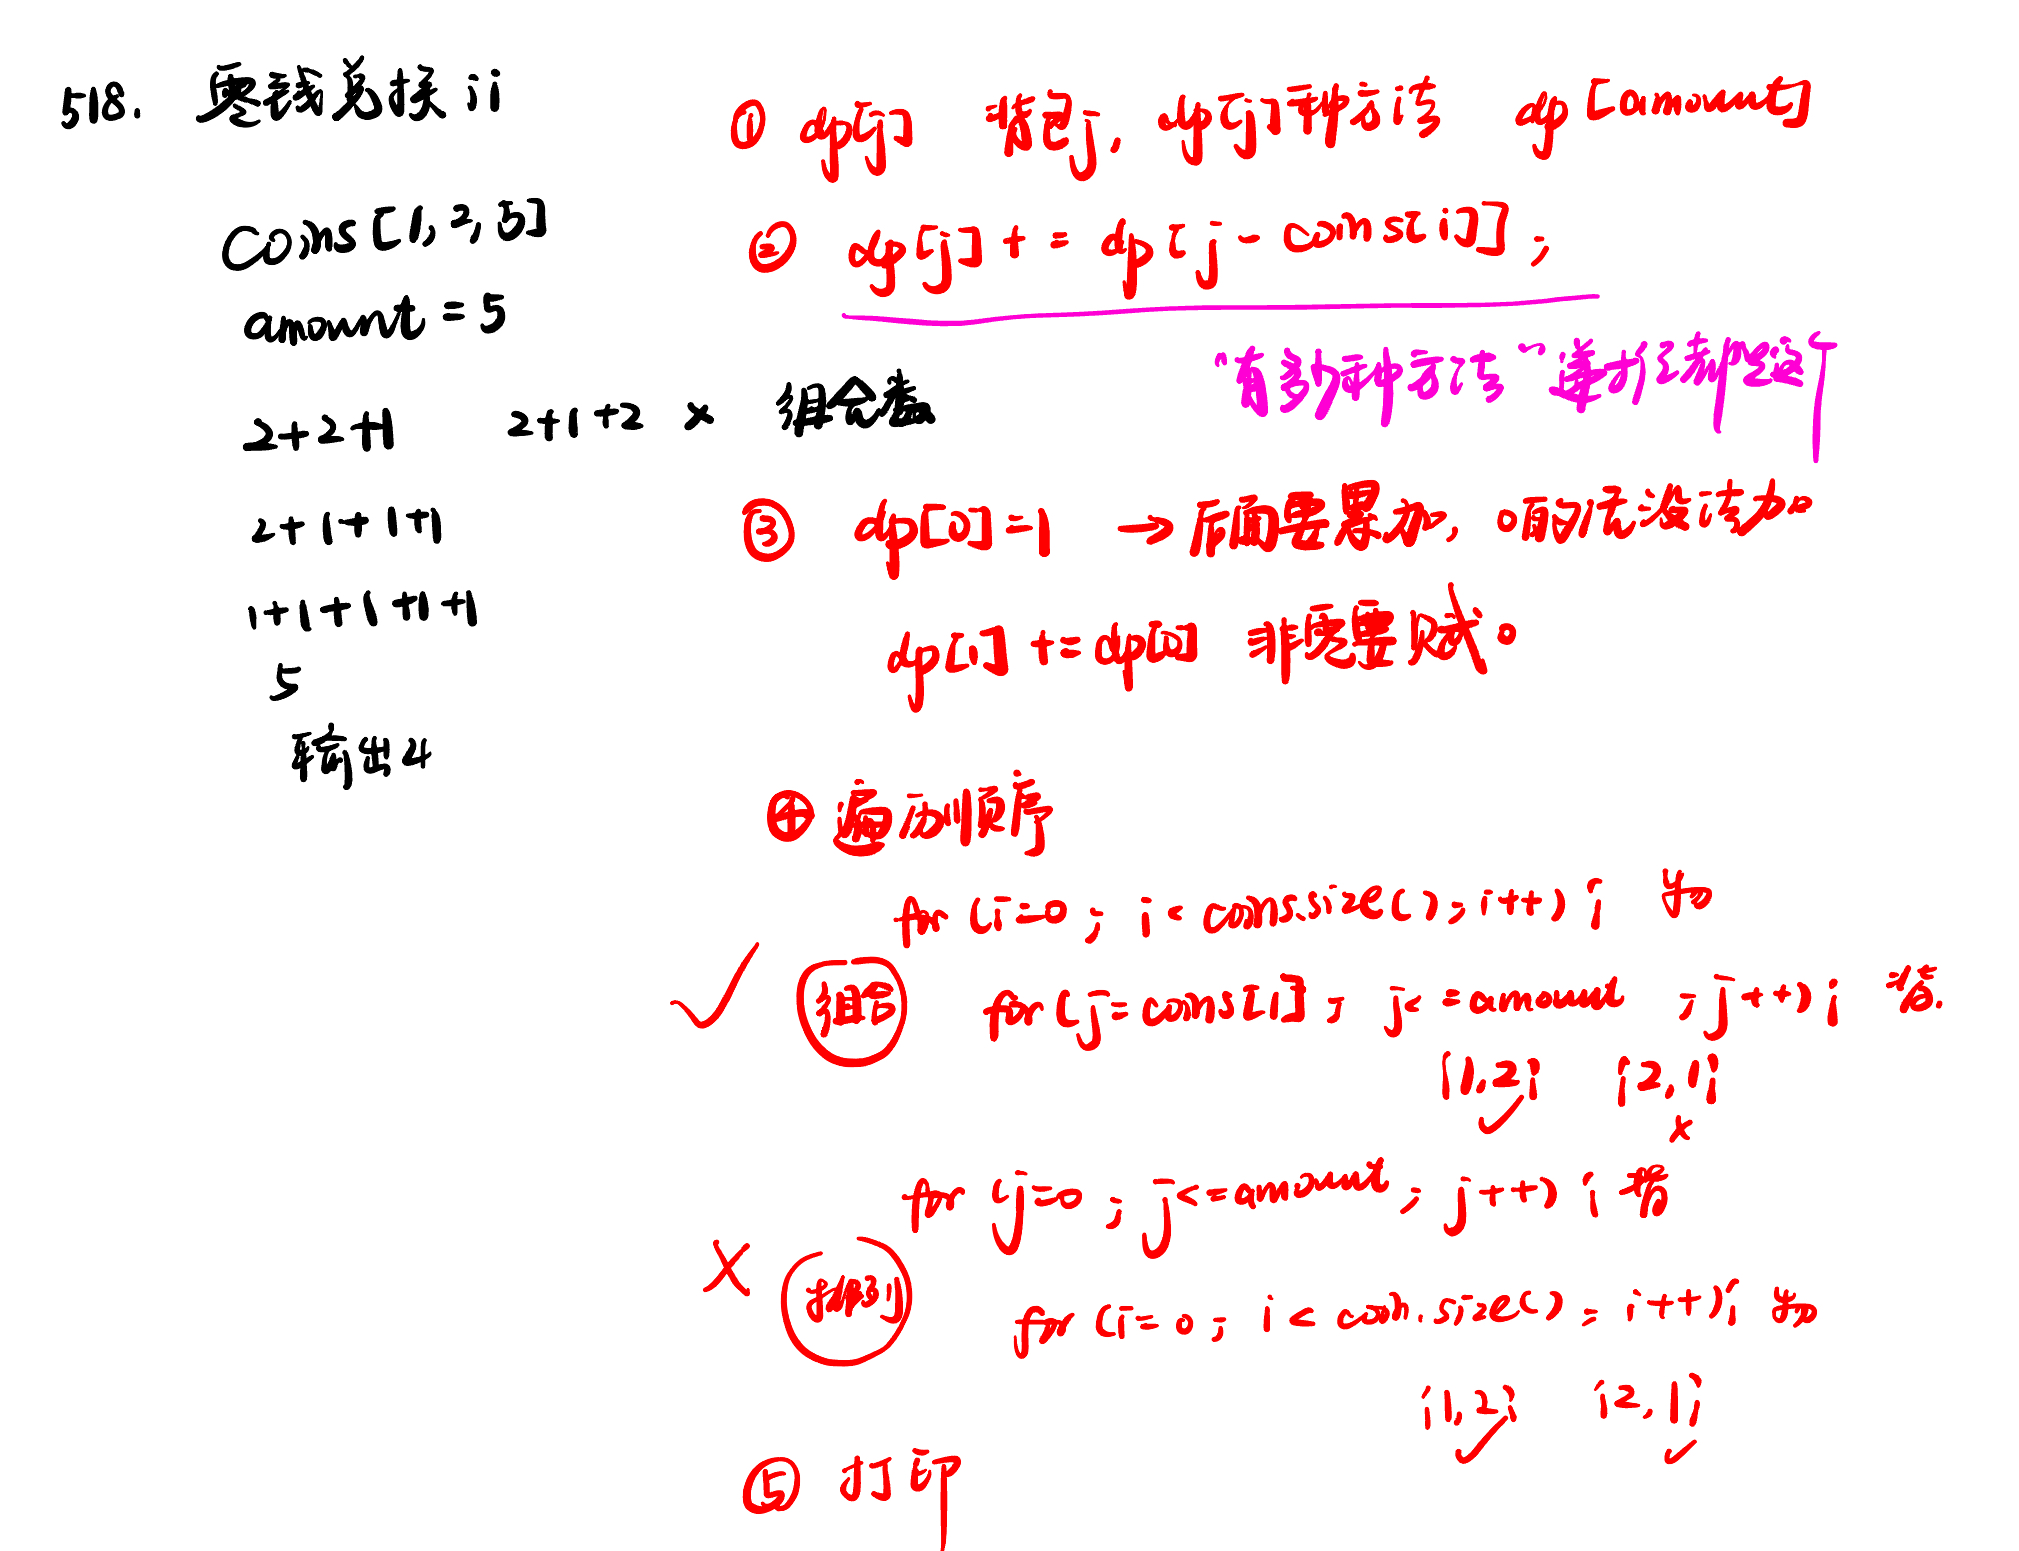 518. 零钱兑换 ii
coins [1, 2, 5]
amount = 5
2+2+1 2+1+2 × 组合数
2+1+1+1
1+1+1+1+1
5
输出4
① dp[j] 背包j, dp[j]种方法 dp[amount]
② dp[j] += dp[j - coins[i]];
“有多少种方法”递推都是这个
③ dp[0]=1 → 后面要累加, 0的话没法加
dp[1] += dp[0] 非零要赋。
④ 遍历顺序
for (i=0; i < coins.size(); i++) { 物
✓ 组合 for (j=coins[i]; j<=amount; j++) { 背.
{1,2} {2,1}
✓ ×
for (j=0; j<=amount; j++) { 背
× 排列 for (i=0; i < coin.size(); i++) { 物
{1,2} {2,1}
✓ ✓
⑤ 打印